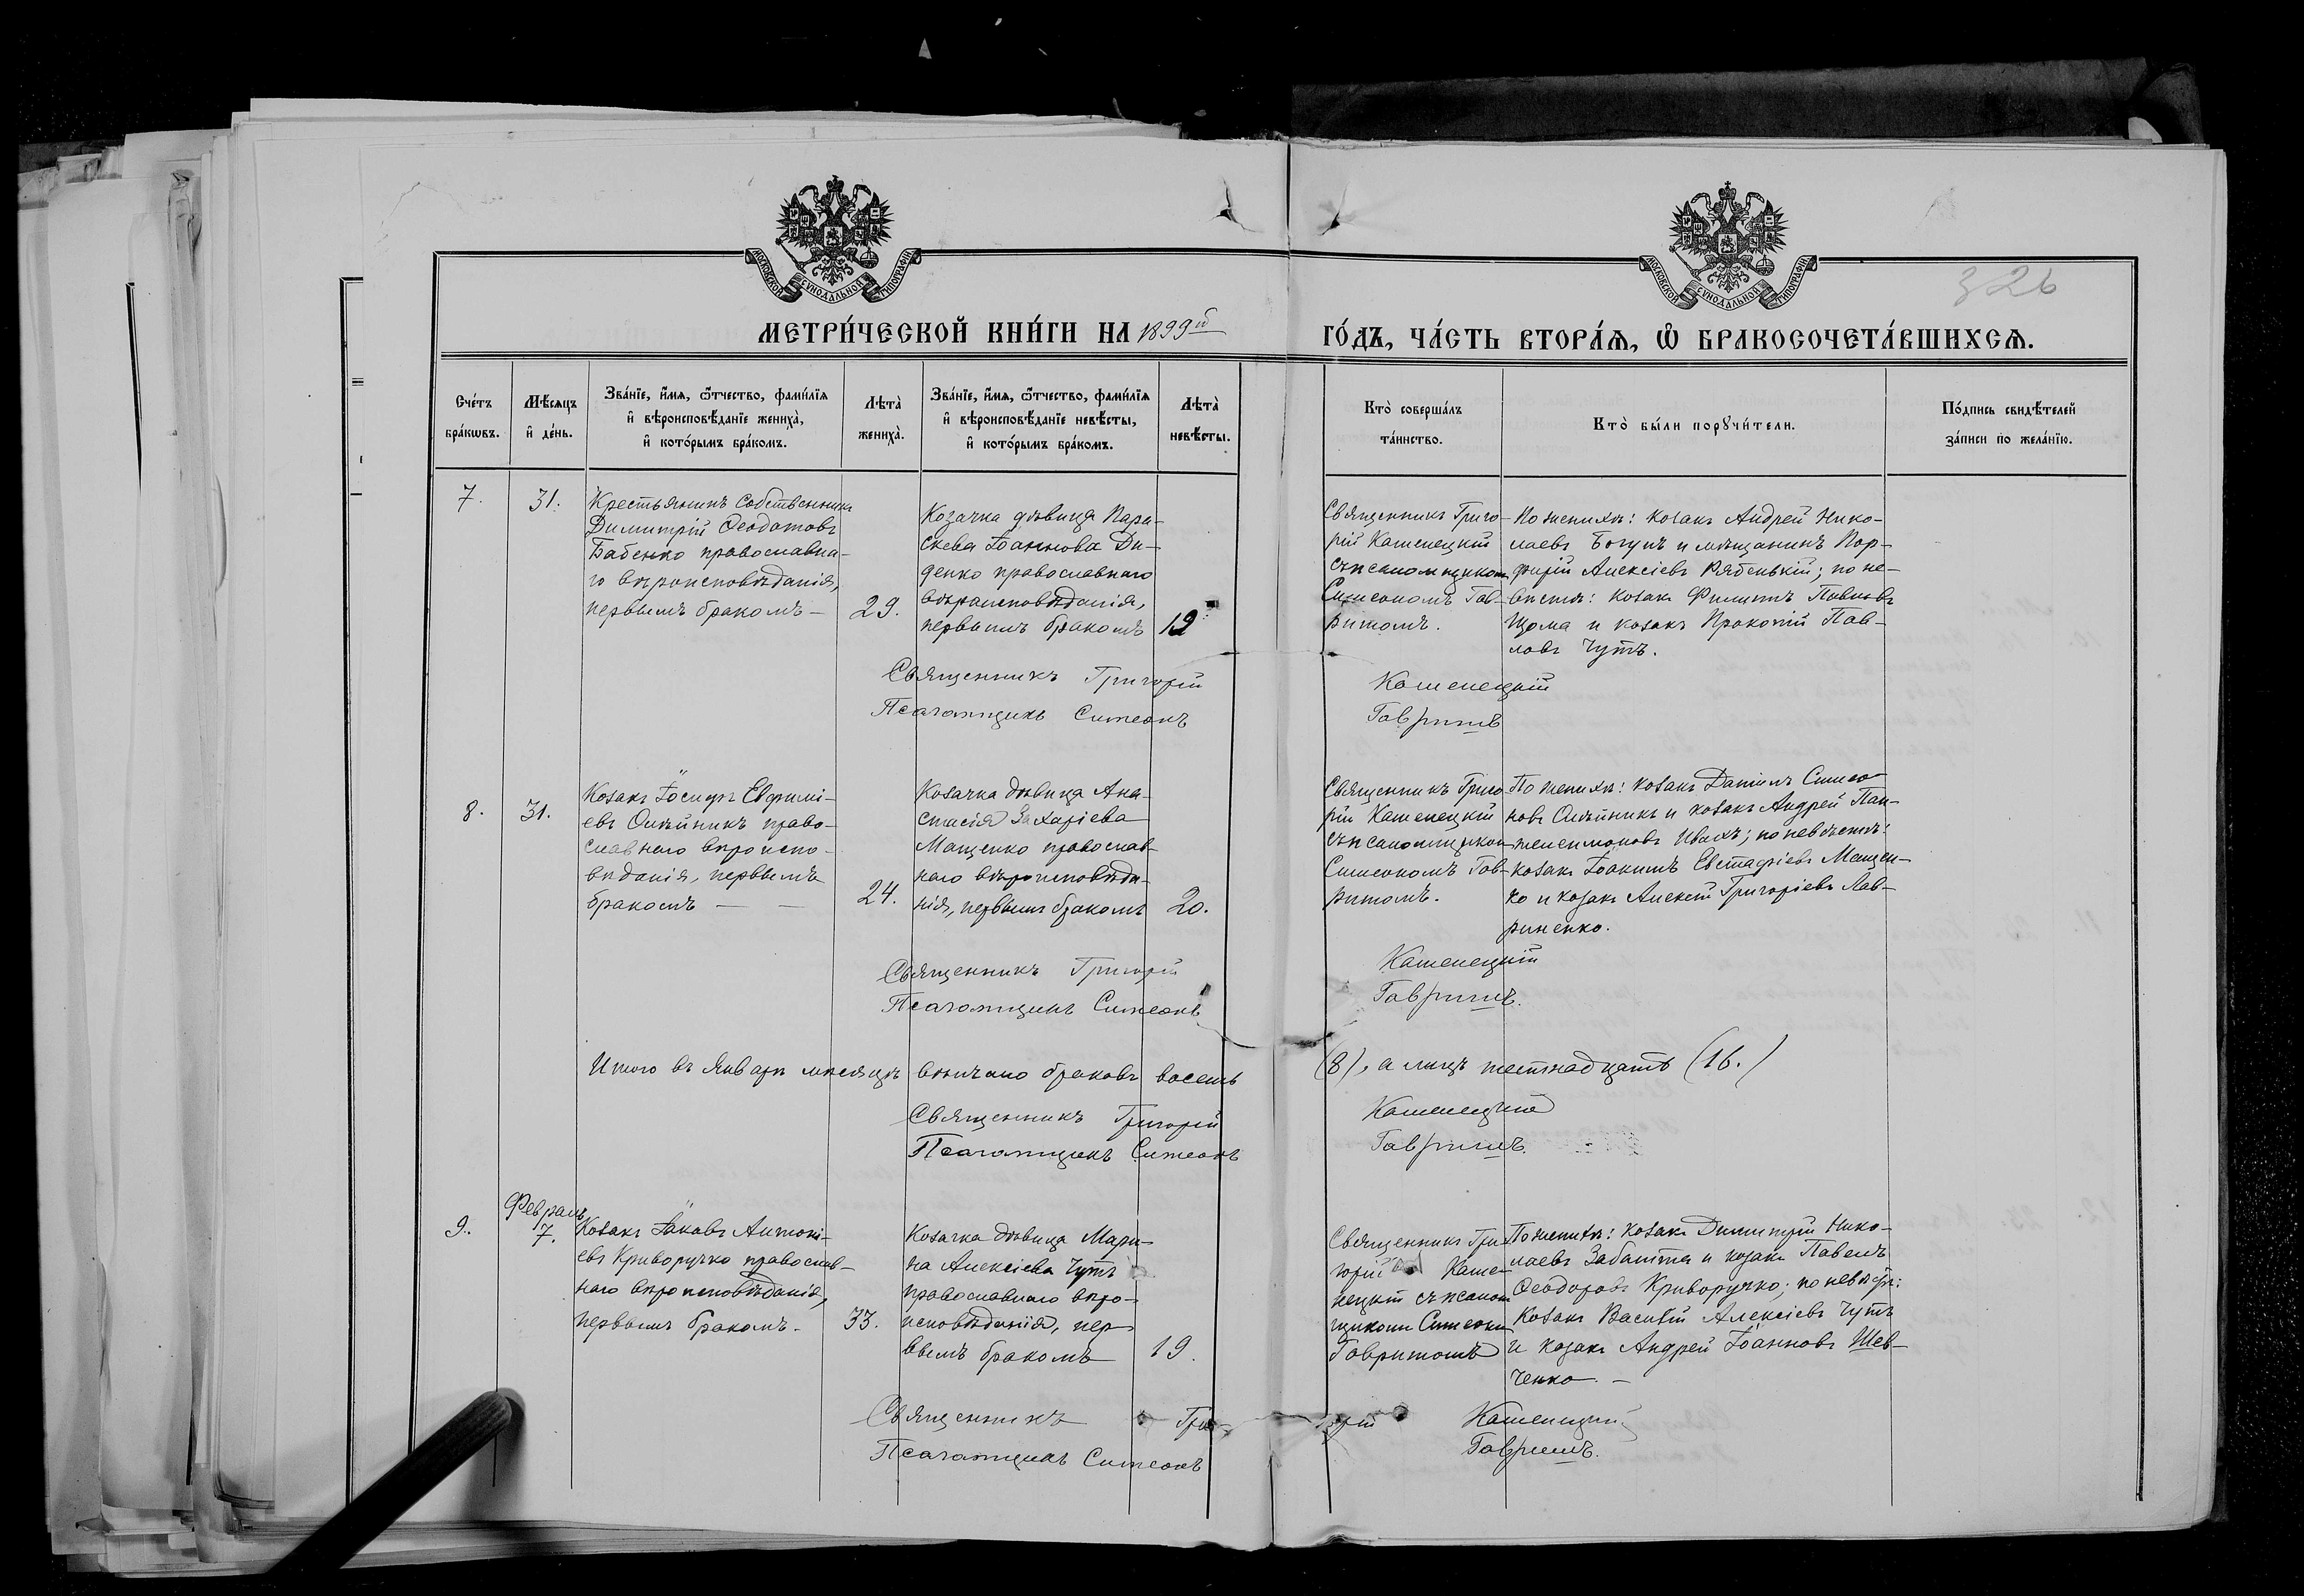 МОСКОВСКОЙ СѴНОДАЛЬНОЙ ТИПОГРАФІИ
МОСКОВСКОЙ СѴНОДАЛЬНОЙ ТИПОГРАФІИ
326
МЕТРИ́ЧЕСКОЙ КНИ́ГИ НА 1899й ГО́ДЪ, ЧА́СТЬ ВТОРА́Я, Ѡ БРАКОСОЧЕТА́ВШИХСЯ.
Сче́тъ
бра́кѡвъ.
Мѣ́сяцъ
и҆ де́нь.
Зва́нїе, и҆́мя, ѻ҆́тчество, фами́лїя
и҆ вѣроисповѣ́данїе жениха̀,
и҆ кото́рымъ бра́комъ.
Лѣта̀
жениха̀.
Зва́нїе, и҆́мя, ѻ҆́тчество, фами́лїя
и҆ вѣроисповѣ́данїе невѣ́сты,
и҆ кото́рымъ бра́комъ.
Лѣта̀
невѣ́сты.
Кто̀ соверша́лъ
та́инство.
Кто̀ бы́ли порꙋчи́тели.
По́дпись свидѣ́телей
за́писи по жела́нїю.
7.
31.
Крестьянинъ собственникъ
Димитрій Ѳеодотовъ
Бабенко православна-
го вѣроисповѣданія,
первымъ бракомъ —
29.
Козачка дѣвица Пара-
скева Іоаннова Ди-
денко православнаго
вѣроисповѣданія,
первымъ бракомъ
19
Священникъ Григо-
рій Каменецкій
съ псаломщикомъ
Симеономъ Гав-
ришомъ.
По женихѣ: козакъ Андрей Нико-
лаевъ Богунъ и мѣщанинъ Пор-
фирій Алексіевъ Рябенькій; по не-
вѣстѣ: козакъ Филиппъ Павловъ
Щома и козакъ Прокопій Пав-
ловъ Чутъ.
Священникъ Григорій Каменецкій
Псаломщикъ Симеонъ Гавришъ
8.
31.
Козакъ Іосифъ Евфимі-
евъ Олѣйникъ право-
славнаго вѣроиспо-
вѣданія, первымъ
бракомъ — —
24.
Козачка дѣвица Ана-
стасія Захаріева
Мащенко православ-
наго вѣроисповѣда-
нія, первымъ бракомъ
20.
Священникъ Григо-
рій Каменецкій
съ псаломщикомъ
Симеономъ Гав-
ришомъ.
По женихѣ: козакъ Даніилъ Симео-
новъ Олѣйникъ и козакъ Андрей Пан-
телеимоновъ Ивахъ; по невѣстѣ:
козакъ Іоакимъ Евстафіевъ Мащен-
ко и козакъ Алексій Григоріевъ Лав-
риненко.
Священникъ Григорій Каменецкій
Псаломщикъ Симеонъ Гавришъ.
Итого въ Январѣ мѣсяцѣ вѣнчано браковъ восемь (8), а лицъ шестнадцать (16.)
Священникъ Григорій Каменецкій
Псаломщикъ Симеонъ Гавришъ.
9.
Февраль
7.
Козакъ Іаковъ Антоні-
евъ Криворучко православ-
наго вѣроисповѣданія,
первымъ бракомъ.
33.
Козачка дѣвица Мари-
на Алексіева Чутъ
православнаго вѣро-
исповѣданія, пер-
вымъ бракомъ
19.
Священникъ Гри-
горій Каме-
нецкій съ псалом-
щикомъ Симеоном
Гавришомъ
По женихѣ: козакъ Димитрій Нико-
лаевъ Забашта и козакъ Павелъ
Ѳеодоровъ Криворучко; по невѣстѣ:
козакъ Василій Алексіевъ Чутъ
и козакъ Андрей Іоанновъ Шев-
ченко. —
Священникъ Григорій Каменецкій
Псаломщикъ Симеонъ Гавришъ.